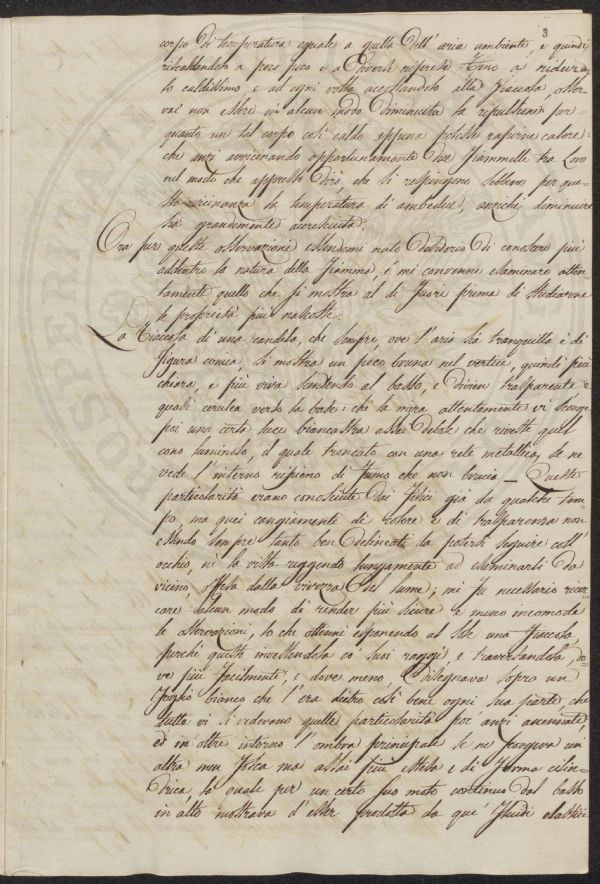 3
corpo di temperatura eguale a quella dell' aria ambiente, e quindi
riscaldandolo a poco poco e a diverse riprese fino a ridurlo
caldissimo, e ad ogni volta accostandolo alla fiaccola, osser-
vai non essere in alcun modo diminuita la ripulsione per
quanto un tal corpo così caldo appena potesse rapirne calore:
che anzi avvicinando opportunamente due fiammelle tra loro
nel modo che appresso dirò, che si respingono sebbene per que-
sta vicinanza la temperatura di ambedue, anziché diminuire
sia grandemente accresciuta.
Ora per queste osservazioni essendomi nato desiderio di conoscere più
addentro la natura della fiamma, e' mi convenne esaminare atten-
tamente quello che si mostra al di fuori prima di studiarne
le proprietà più nascoste.
La fiaccola di una candela, che sempre, ove l'aria sia tranquilla è di
figura conica, si mostra un poco bruna nel vertice, quindi più
chiara, e più viva scendendo al basso, e divien trasparente e
quasi cerulea verso la base: chi la mira attentamente vi scorge
poi una certa luce biancastra assai debole che riveste quel
cono luminoso, il quale troncato con una rete metallica, se ne
vede l'interno ripieno di fumo che non brucia — Queste
particolarità erano conosciute dai fisici già da qualche tem-
po, ma quei cangiamenti di colore e di trasparenza non
essendo sempre tanto ben delineati da potersi seguire coll'
occhio, nè la vista reggendo lungamente ad esaminarli da
vicino, offesa dalla vivezza del lume; mi fu necessario ricer-
care alcun modo di render più sicure e meno incomode
le osservazioni, lo che ottenni esponendo al sole una fiaccola,
perchè questo investendola co' suoi raggi, e traversandola, do-
ve più facilmente, e dove meno, disegnava sopra un
foglio bianco che l'era dietro così bene ogni sua parte, che
tutte vi si vedevano quelle particolarità poc' anzi accennate,
ed in oltre intorno l'ombra principale se ne scorgeva un'
altra men fosca ma assai più estesa e di forma cilin-
drica, la quale per un certo suo moto continuo dal basso
in alto mostrava d'esser prodotta da que' fluidi elastici